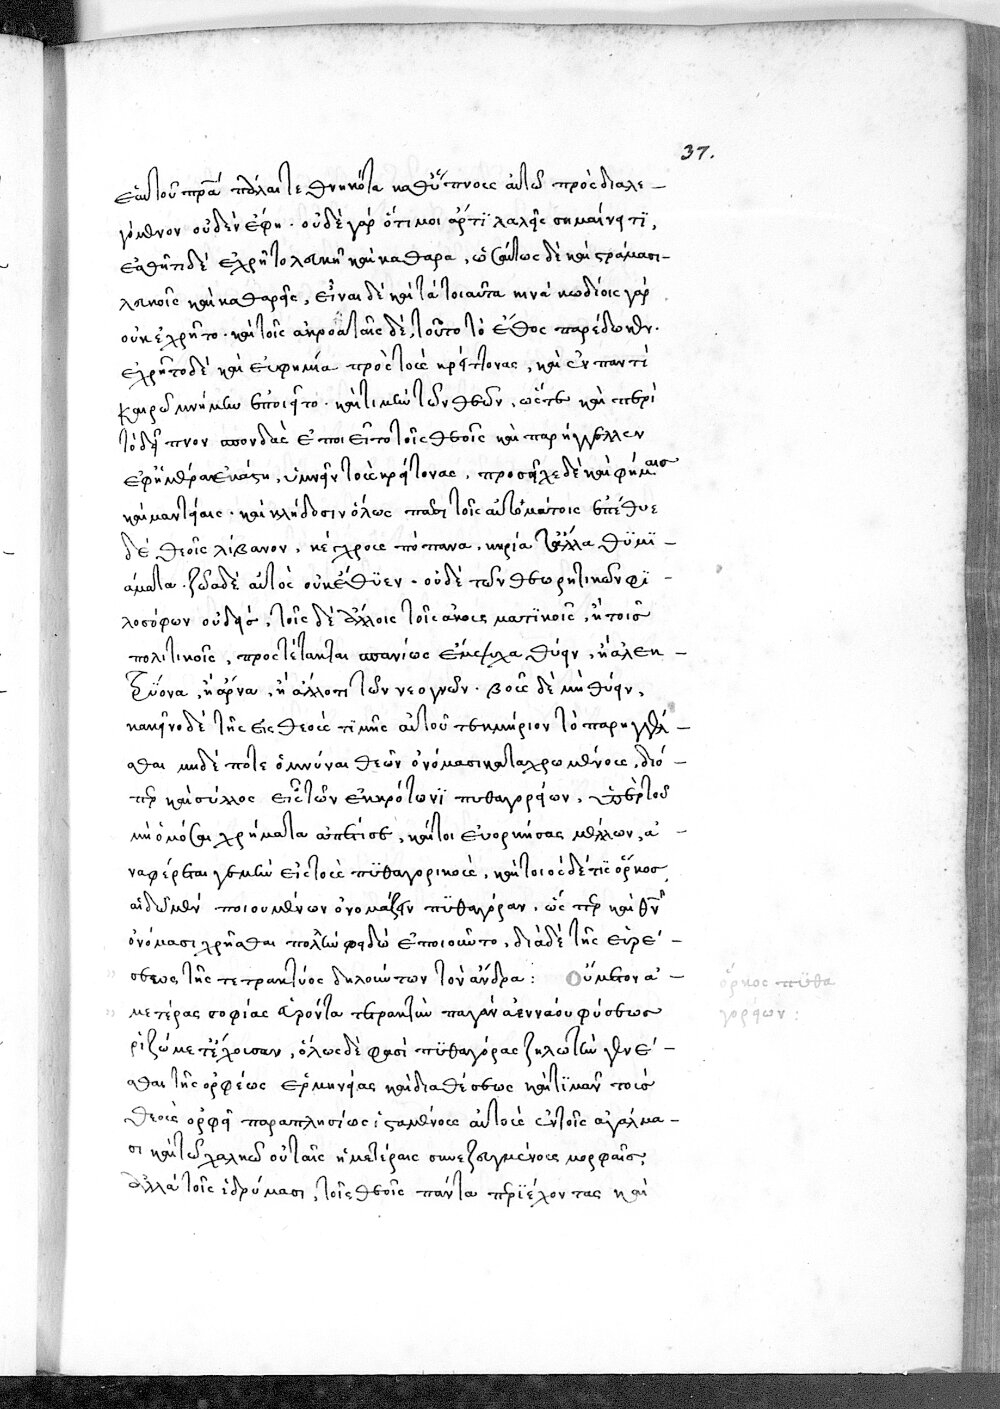 37.
ἑαυτοῦ πρα πάλαι τεθνηκότα καθ' ὕπνους αὐτῷ προσδιαλε-
γόμενον οὐδὲν ἔφη. οὐδὲ γὰρ ὅτι μοι ἄρτι λαλεῖς σημαίνει τι,
ἐσθῆτι δὲ ἐχρῆτο λευκῇ καὶ καθαρᾷ, ὡσαύτως δὲ καὶ στρώμασι
λευκοῖς καὶ καθαροῖς, εἶναι δὲ καὶ τὰ τοιαῦτα λινᾶ κωδίοις γὰρ
οὐκ ἐχρῆτο. καὶ τοῖς ἀκροαταῖς δὲ, τοῦτο τὸ ἔθος παρέδωκεν.
ἐχρῆτο δὲ καὶ εὐφημίᾳ πρὸς τοὺς κρείττονας, καὶ ἐν παντὶ
καιρῷ μνήμην ἐποιεῖτο. καὶ τιμὴν τῶν θεῶν, ὥστε καὶ περὶ
τὸ δεῖπνον σπονδὰς ἐποιεῖτο τοῖς θεοῖς καὶ παρήγγελλεν
ἐφ' ἡμέρᾳ ἑκάστῃ, ὑμνεῖν τοὺς κρείττονας, προσεῖχε δὲ καὶ φήμαις
καὶ μαντείαις. καὶ κλήδοσιν ὅλως πᾶσι τοῖς αὐτομάτοις ἐπέθυε
δὲ θεοῖς λίβανον, κέγχρους πόπανα, κηρία τἄλλα θυμι-
άματα. ζῶα δὲ αὐτὸς οὐκ ἔθυεν. οὐδὲ τῶν θεωρητικῶν φι-
λοσόφων οὐδείς, τοῖς δὲ ἄλλοις τοῖς ἀκουσματικοῖς, ἢ τοῖς
πολιτικοῖς, προστέτακται σπανίως ἔμψυχα θύειν, ἢ ἀλεκ-
τρύονα, ἢ ἄρνα, ἢ ἄλλο τι τῶν νεογνῶν. βοῦς δὲ μὴ θύειν,
κἀκεῖνο δὲ τῆς εἰς θεοὺς τιμῆς αὐτοῦ τεκμήριον τὸ παρηγγέλ-
θαι μηδέποτε ὀμνύναι θεῶν ὀνόμασι καταχρωμένους, διό-
περ καὶ σύλλος εἷς τῶν ἐν κρότωνι πυθαγορείων, ὑπὲρ τοῦ
μὴ ὀμόσαι χρήματα ἀπέτισε, καίτοι εὐορκήσας μέλλων, ἀ-
ναφέρεται γεμὴν εἰς τοὺς πυθαγορικοὺς, καὶ τοιόσδέ τις ὅρκος
αἰδουμέν ποιουμένων ὀνομάζειν πυθαγόραν, ὥσπερ καὶ θεῶν
ὀνόμασι χρῆσθαι πολλὴν φειδὼ ἐποιοῦντο, διὰ δὲ τῆς εὑρέ-
σεως τῆς τετρακτύος δηλούντων τὸν ἄνδρα: Οὔμετον ἁ-
μετέρας σοφίας εὑρόντα τετρακτὺν παγὰν ἀεννάου φύσεως
ῥιζώματ' ἔχοισαν, ὅλως δέ φασὶ πυθαγόρας ζηλωτὴν γενέ-
σθαι τῆς ὀρφέως ἑρμηνείας καὶ διαθέσεως καὶ τιμᾶν τοὺς
θεοὺς ὀρφεῖ παραπλησίως ἱσταμένους αὐτοὺς ἐν τοῖς ἀγάλμα-
σι καὶ τῷ χαλκῷ οὐ ταῖς ἡμετέραις συνεζευγμένους μορφαῖς,
ἀλλὰ τοῖς ἱδρύμασι, τοῖς θεοῖς πάντα περιέχοντας καὶ
ὅρκος πυθα
γορείων: